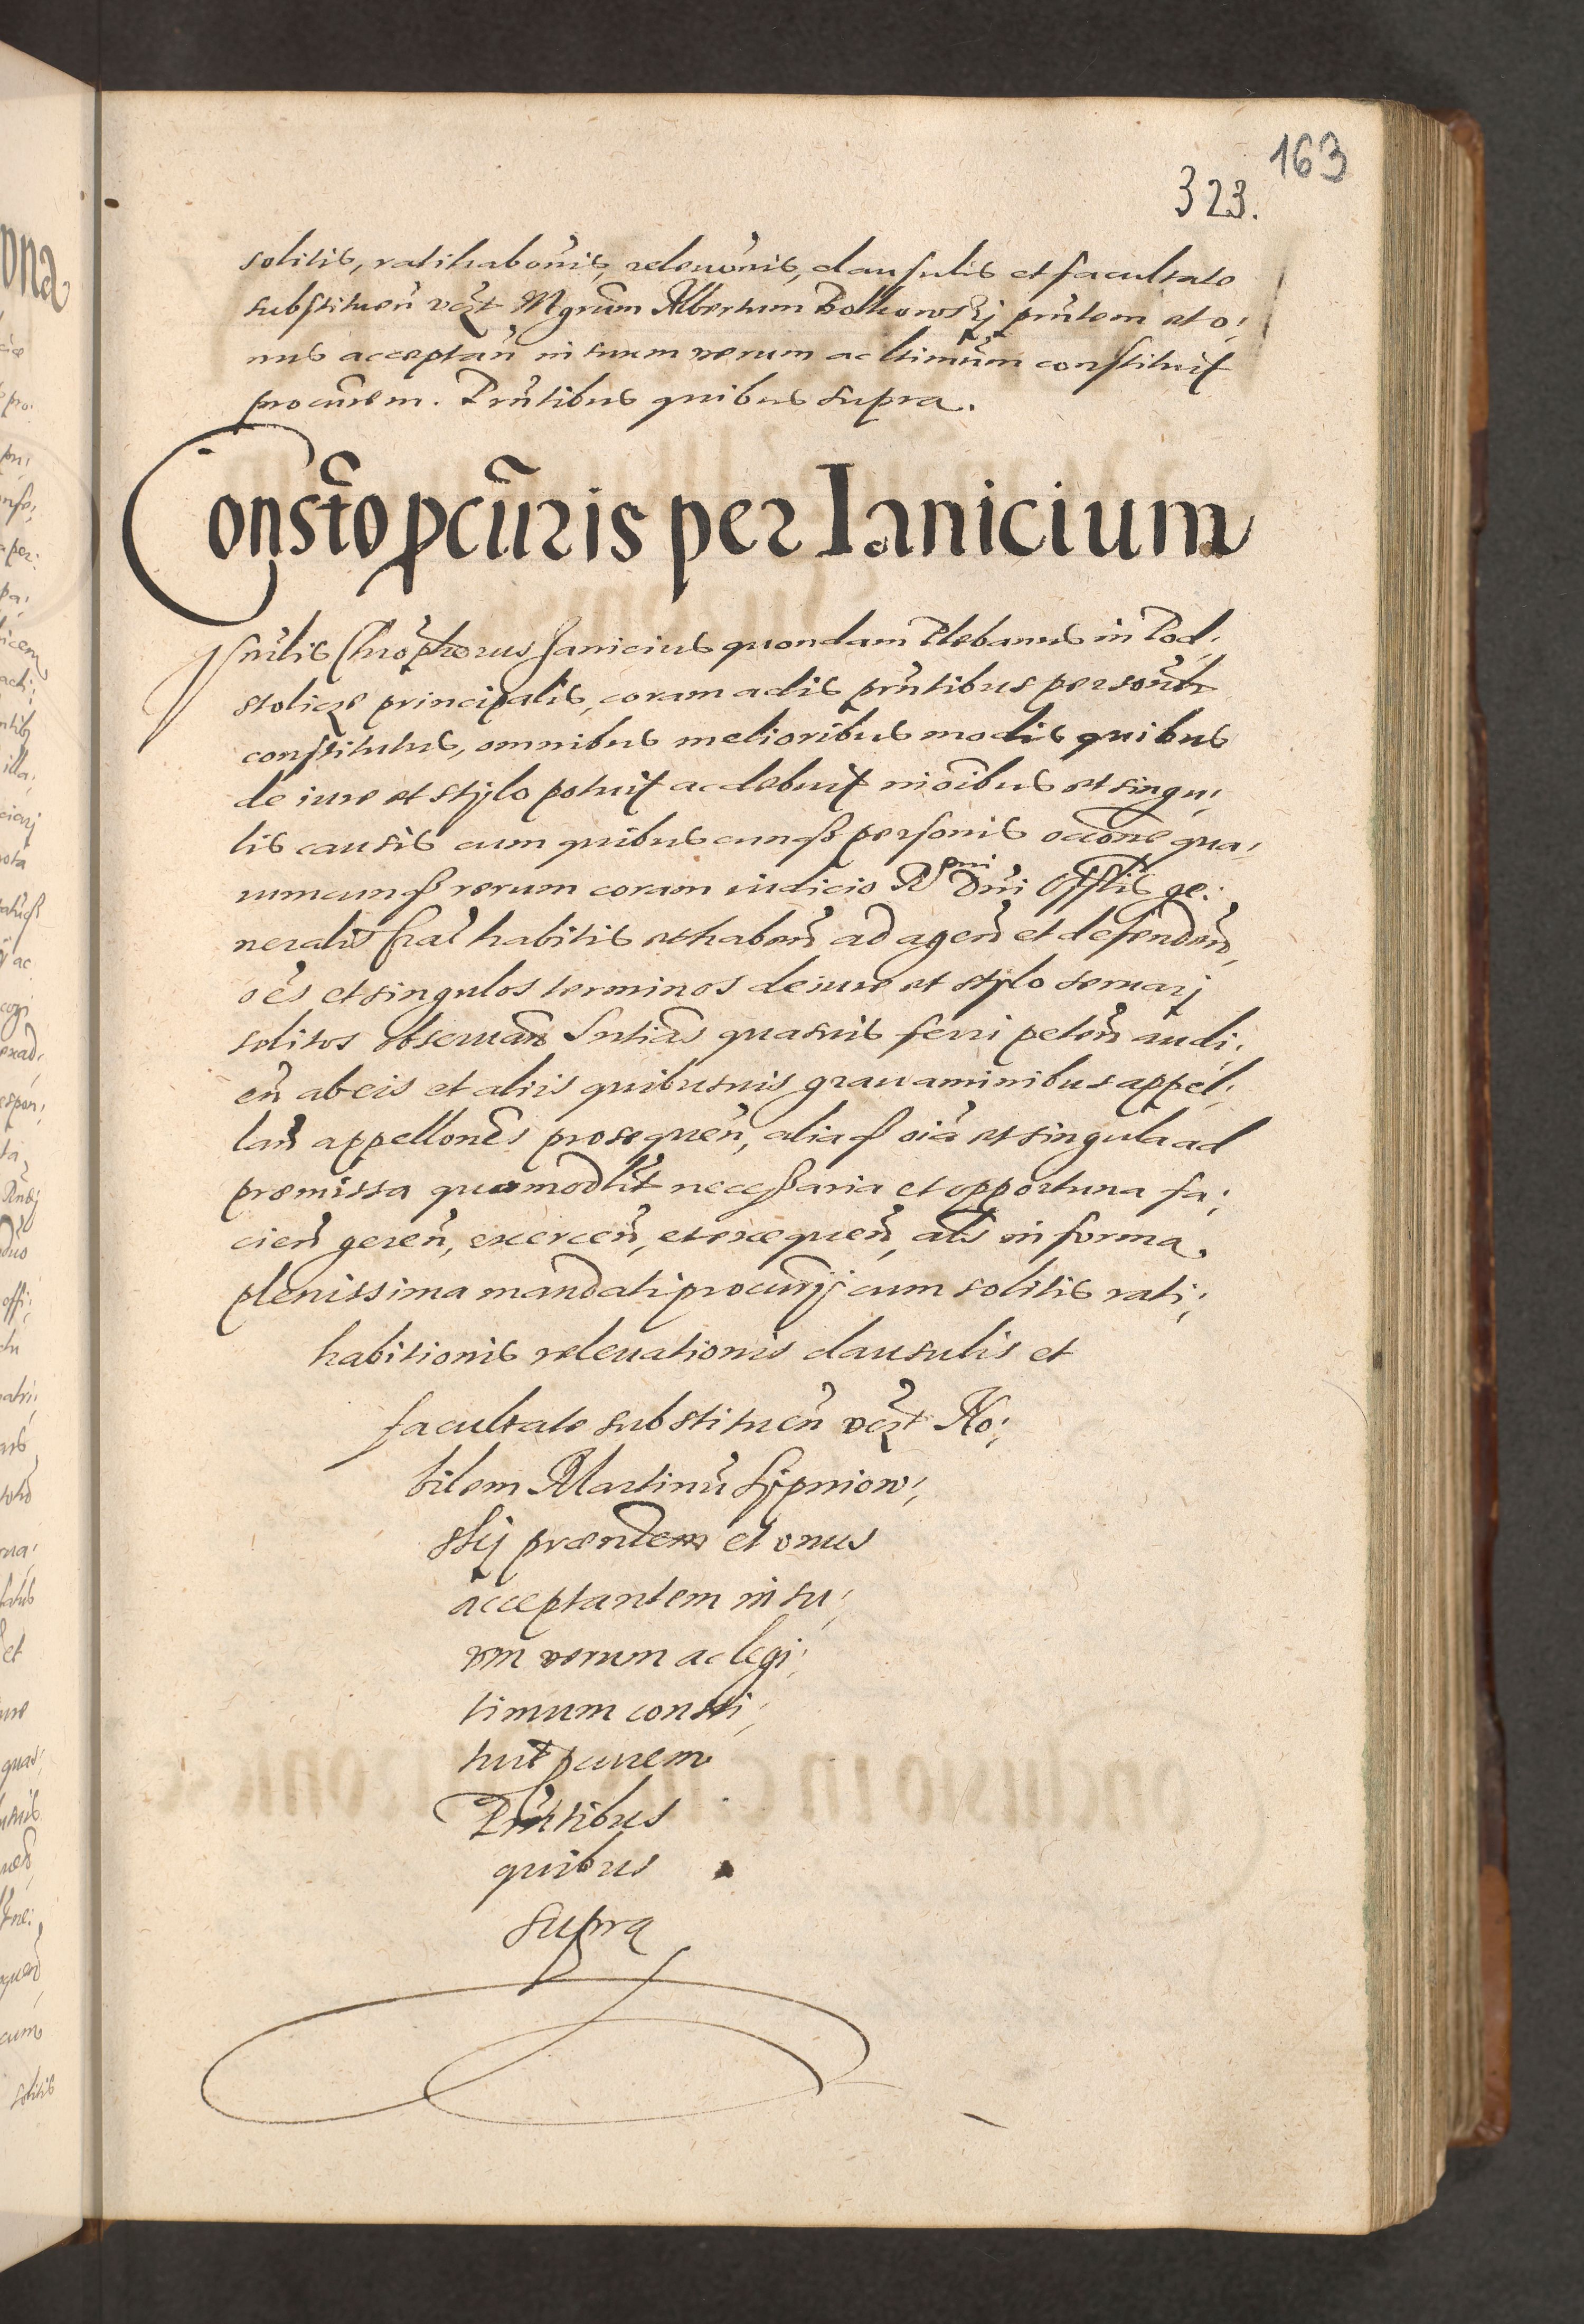 163
323.
solitis, ratihabōnis, releuōnis, clausulis et facultate
substituen̄ vc̄z̄t Mgrum Albertum Bolkowskij prn̄tem et o:
nus acceptan̄ in suum verum ac ltimūm constituit
procurēm. Prn̄tibus quibus supra.
Constō pcūris per Ianicium
Hn̄rlis Chrōphorus Janicius quondam Plebanus in Pod:
stolicze principalis, coram actis prn̄tibus personlr
constitutus, omnibus melioribus modis quibus
de iure et stÿlo potuit ac debuit in oībus et singu:
lis causis cum quibuscunq3 personis occōne qua:
rumcunq3 rerum coram iudicio R Dn̄i Offlis ge:
neralis habitis et haben̄ ad agen̄ et defenden̄
oēs et singulos terminos de iure et stÿlo seruarj
solitos obseruan̄ Sn̄tias quasuis ferri peten̄ audi:
en̄ ab eis et aliis quibusuis grauaminibus appel:
lan̄ appellōnes prosequen̄, aliaq3 oīa et singula ad
præmissa quomodlt necessaria et opportuna fa:
cien̄ geren̄, exercen̄, et exequen̄, als in forma
plenissima mandati procurij cum solitis rati:
habitionis releuationis clausulis et
facultate substituen̄ vc̄z̄t No:
bilem Martinū Sÿpniow:
skij præntem et onus
acceptantem in su:
um verum ac legi:
timum consti:
tuit pcurem
Prn̄tibus
quibus
supra